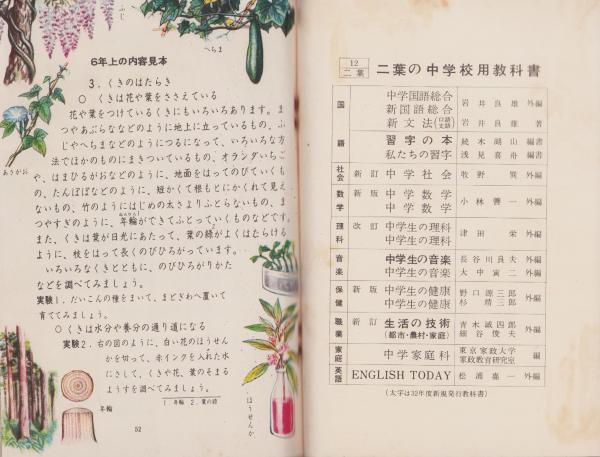 ふじ
へちま
6年上の内容見本
3．くきのはたらき
○ くきは花や葉をささえている
花や葉をつけているくきにもいろいろあります。ま
つやあぶらななどのように地上に立っているもの、ふ
じやへちまなどのようにつるになって、いろいろな方
法でほかのものにまきついているもの、オランダいちご
や、はまひるがおなどのように、地面をはってのびていくも
の、たんぽぽなどのように、短かくて根もとにかくれて見え
ないもの、竹のようにはじめの太さよりふとらないもの、ま
つやすぎのように、年輪ができてふとっていくものなどです。
また、くきは葉が日光にあたって、葉の緑がよくはむらける
ように、枝をはって長くのびひろがっています。
いろいろなくきとともに、のびひろがりかた
などを調べてみましょう。
実験1．だいこんの種をまいて、まどぎわへ置いて
育ててみましょう。
○ くきは水分や養分の通り道になる
実験2．右の図のように、白い花のほうせん
かを切って、赤インクを入れた水
にさして、くきや花、葉のそまる
ようすを調べてみましょう。
1．年輪 2．葉の緑
あさがお
年輪
ほうせんか
52
12
二葉
二葉の中学校用教科書
国語
中学国語総合
新国語総合
岩井良雄 外編
新文法(口語 文語)
岩井良雄 著
習字の本
続木湖山 編書
私たちの習字
浅見喜舟 編書
社会
新訂 中学社会
牧野巽 外編
数学
新版 中学数学
中学数学
小林善一 外編
理科
改訂 中学生の理科
中学生の理科
津田栄 外編
音楽
中学生の音楽
長谷川良夫 外編
中学生の音楽
大中寅二 外編
保健
新版 中学生の健康
中学生の健康
野口源三郎
杉靖三郎
外編
職業
新訂 生活の技術
(都市・農村・家庭)
青木誠四郎
細谷俊夫
外編
家庭
中学家庭科
東京家政大学
家政教育研究室
編
英語
ENGLISH TODAY
松浦嘉一 外編
(太字は32年度新規発行教科書)